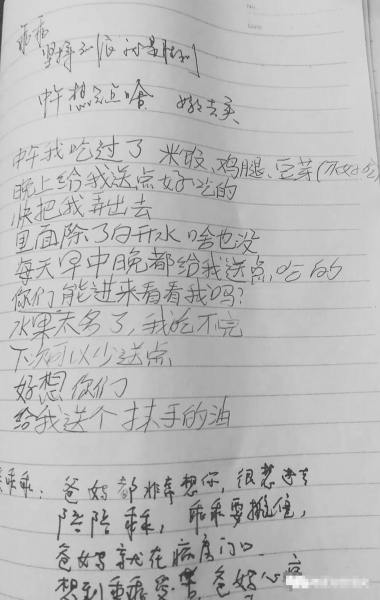 乖乖
坚持
中午想吃点啥 妈去买
中午我吃过了 米饭、鸡腿、豆芽(不好吃)
晚上给我送点好吃的
快把我弄出去
里面除了白开水啥也没
每天早中晚都给我送点吃的
你们能进来看看我吗?
水果太多了,我吃不完
下次可以少送点
好想你们
给我送个抹手的油
乖乖:爸妈都非常想你,很想进去
陪陪乖乖,乖乖要挺住,
爸妈就在病房门口.
想到乖乖受 爸妈心